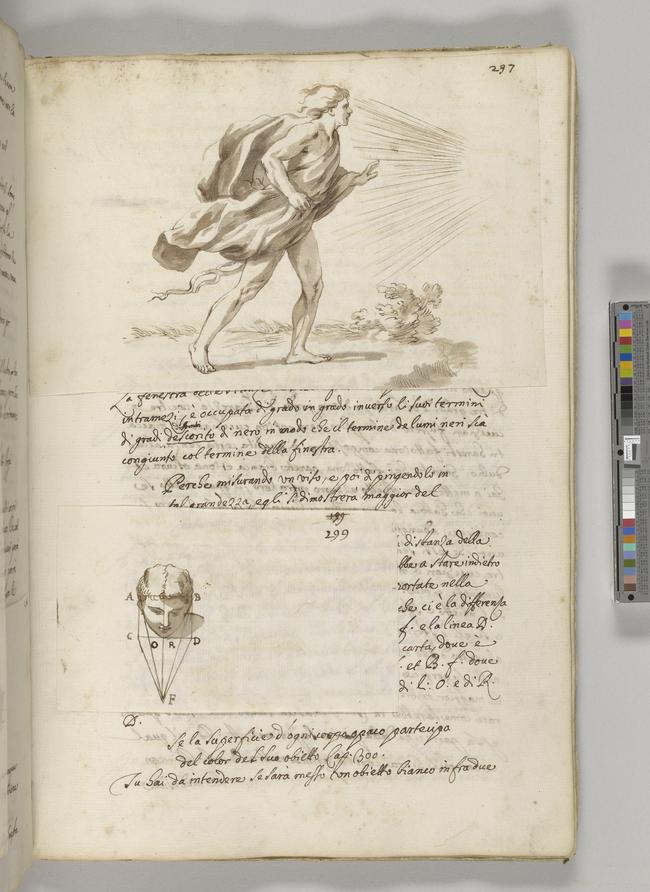 297
La fenestra
intramezi, è occupata di grado in grado inverso li suoi termini
di gradi descorito di neri in modo che il termine de lumi neri sia
congiunto col termine della finestra.
Perche misurando un viso, e poi dipingendolo in
tal grandezza, egli si dimostrera maggior del
199
299
i distanza della
bbe a stare indietro
portate nella
che ci è la differenza
A B
f. e la linea D.
C O R D
carta, dove è
et B. f. dove
F
di L: O. e di R.
D.
Se la superficie d'ogni opaco partecipa
del color del suo obietto Cap. 300.
Tu hai da intendere se sara messo un obietto bianco in fra due